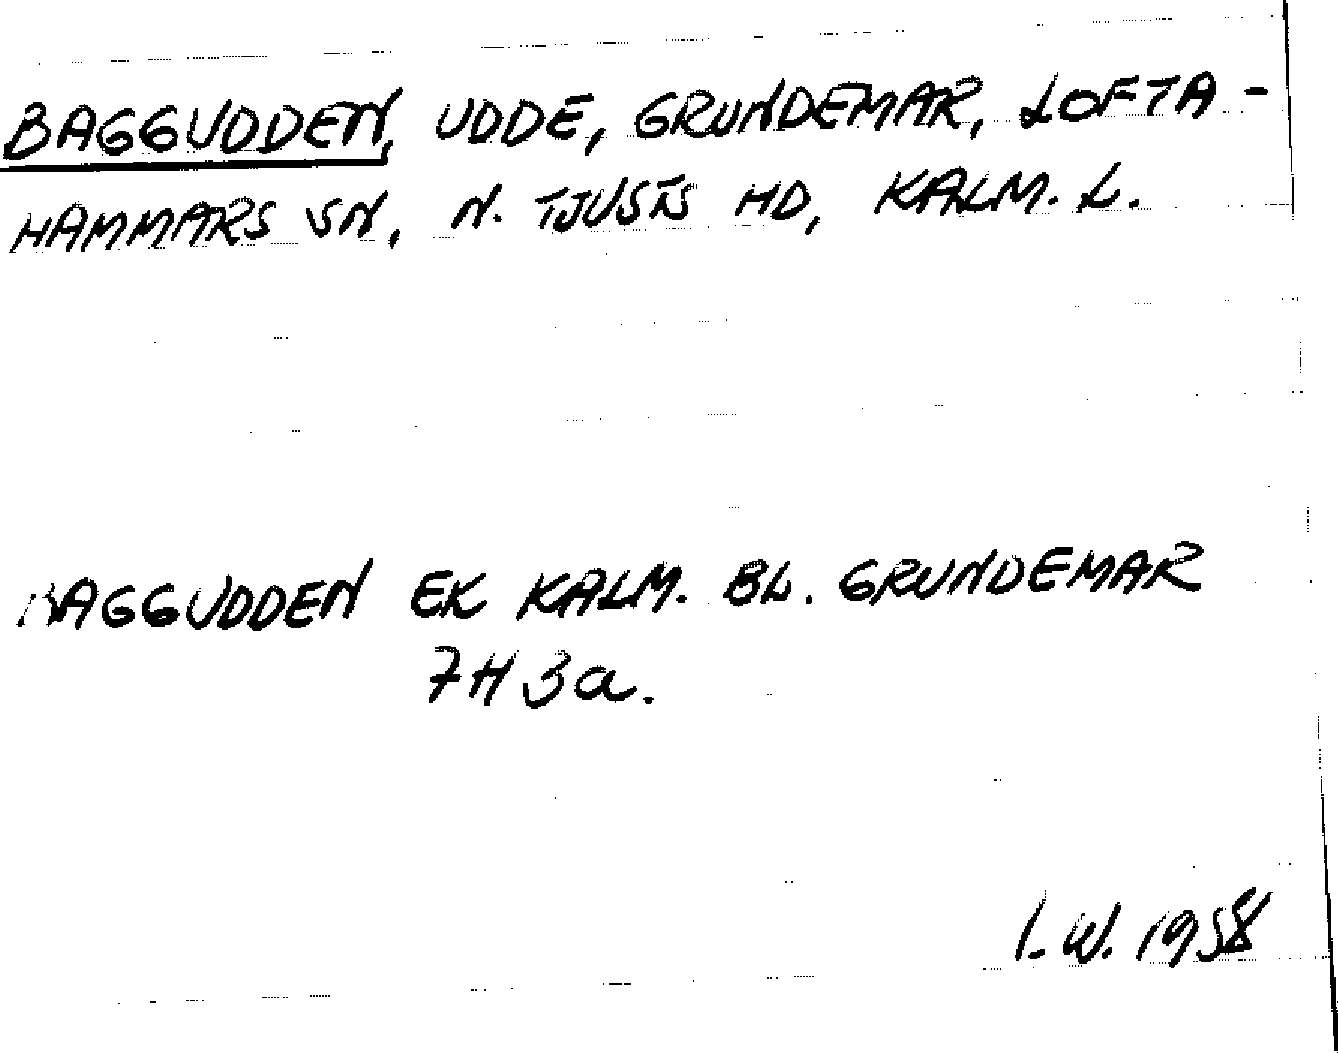 BAGGUDDEN, UDDE, GRUNDEMAR, LOFTA-
HAMMARS SN, N. TJUSTS HD, KALM. L.
BAGGUDDEN EK KALM. BL. GRUNDEMAR
7H 3a.
I. W. 1958